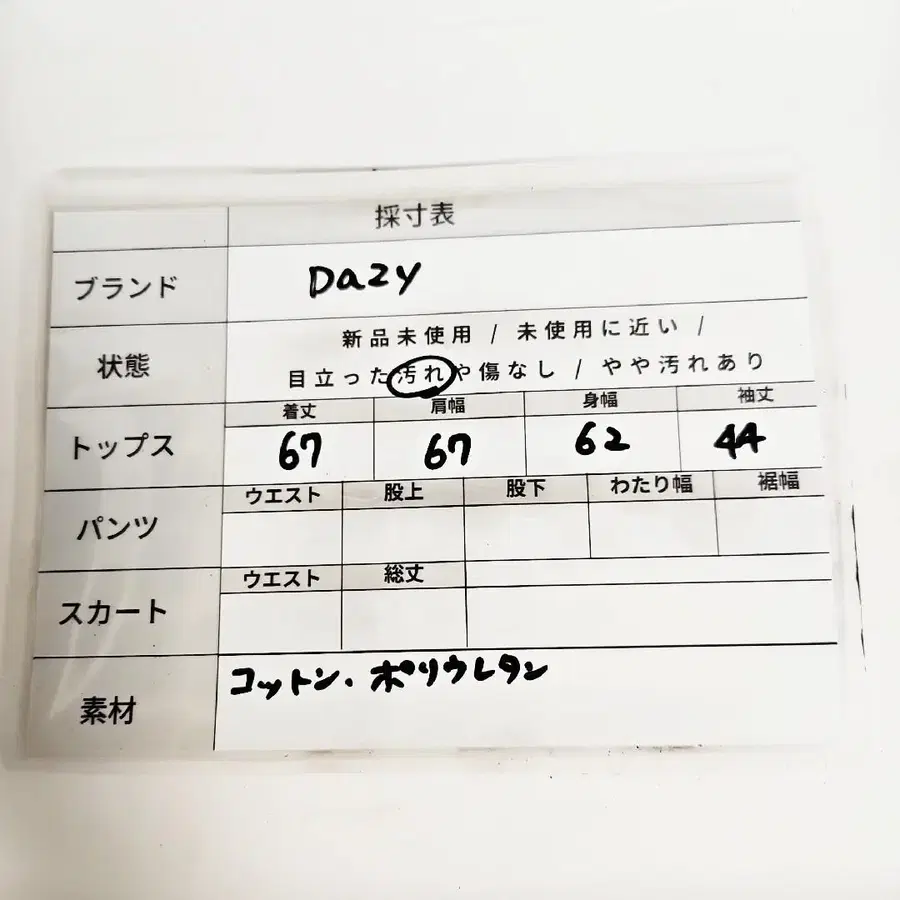 採寸表
ブランド Dazy
状態 新品未使用 / 未使用に近い /
目立った汚れや傷なし / やや汚れあり
着丈 肩幅 身幅 袖丈
トップス 67 67 62 44
ウエスト 股上 股下 わたり幅 裾幅
パンツ
ウエスト 総丈
スカート
素材 コットン・ポリウレタン